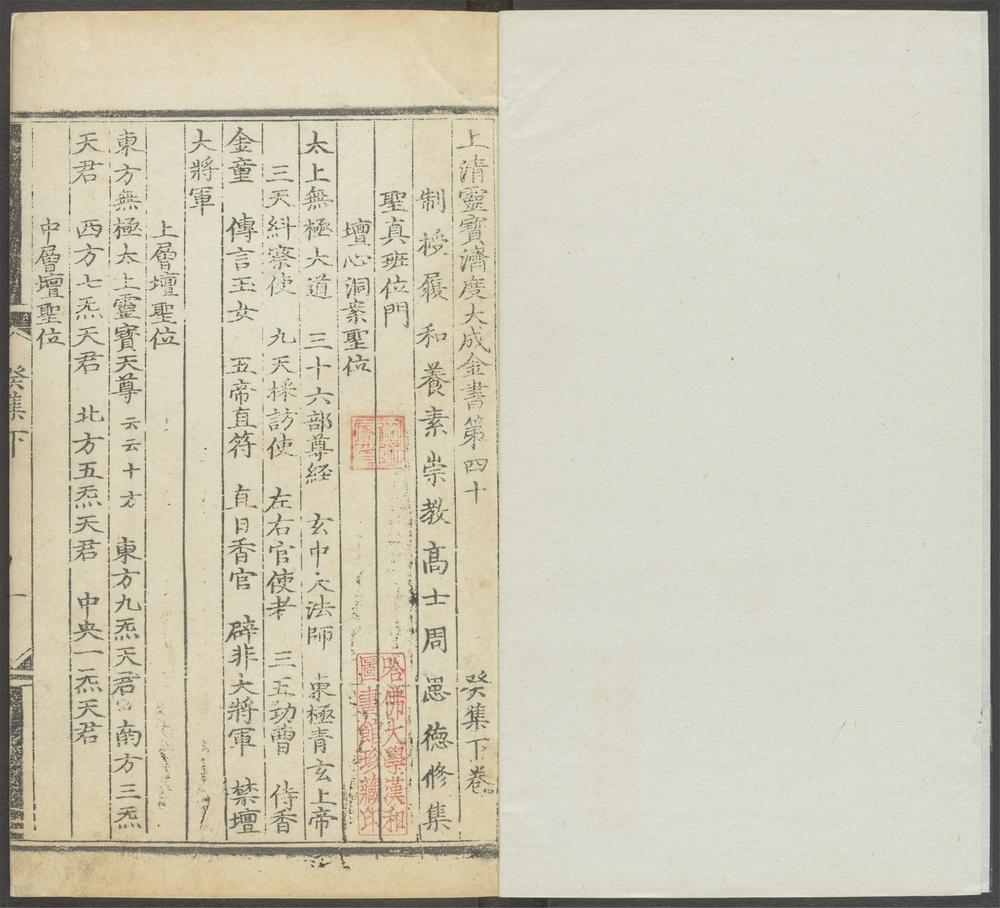 上清靈寶濟度大成金書第四十 癸集下卷
制授履和養素崇教高士周思德修集
聖真班位門
壇心洞案聖位
太上無極大道 三十六部尊経 玄中大法師 東極青玄上帝
三天糾察使 九天採訪使 左右官使者 三五功曹 侍香
金童 傳言玉女 五帝直符 直日香官 辟非大將軍 禁壇
大將軍
上層壇聖位
東方無極太上靈寳天尊云云十方 東方九炁天君 南方三炁
天君 西方七炁天君 北方五炁天君 中央一炁天君
中層壇聖位
癸集下
一
哈佛大學漢和
圖書館珍藏印